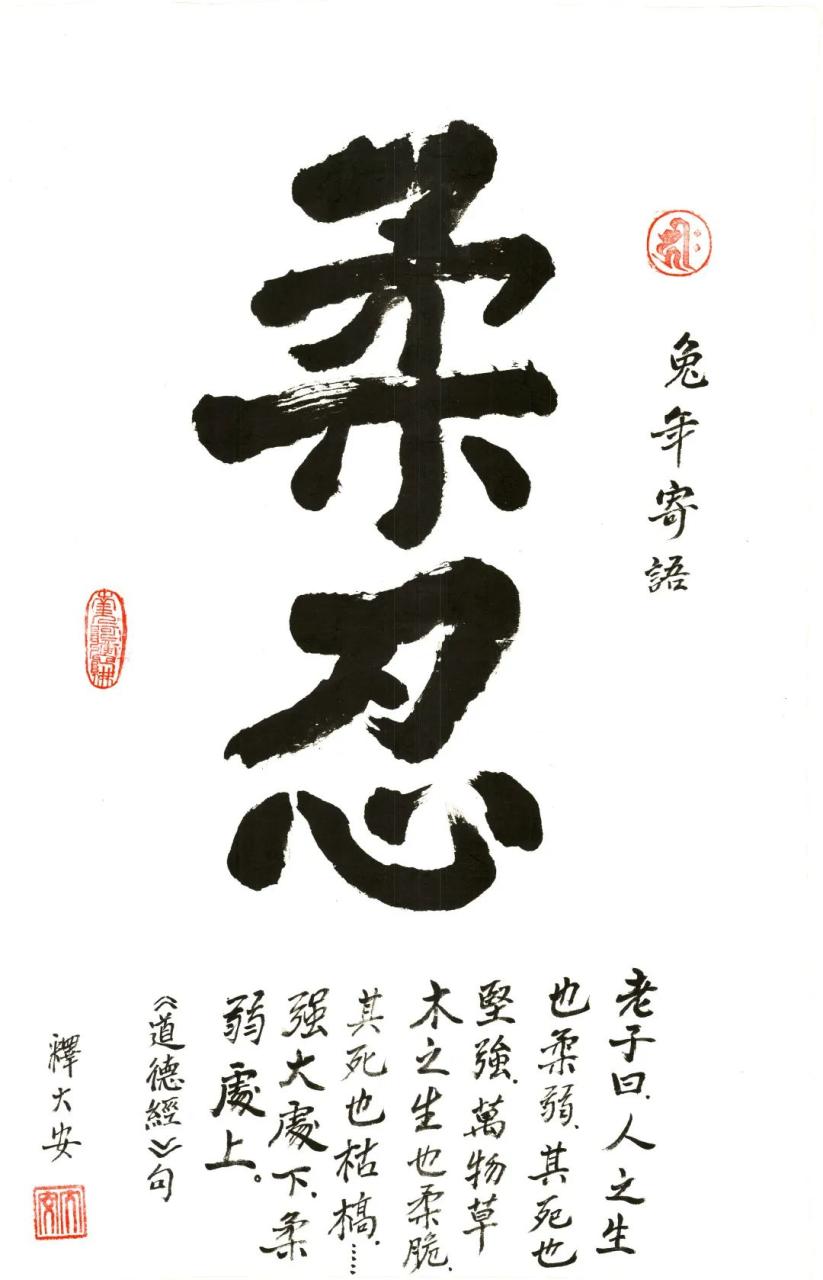 兔年寄語
柔忍
老子曰、人之生
也柔弱、其死也
堅強、萬物草
木之生也柔脆、
其死也枯槁、……
强大處下、柔
弱處上。
《道德經》句
釋大安